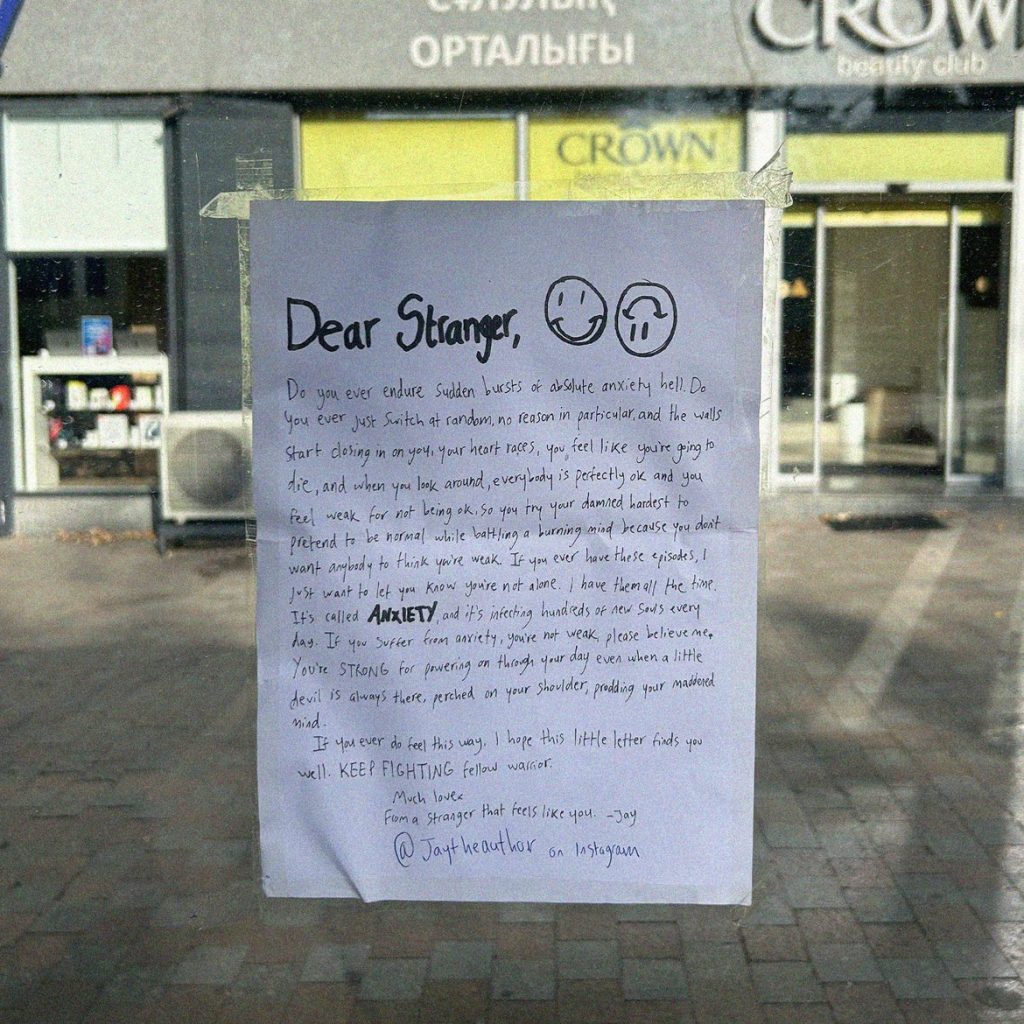 СҰЛУЛЫҚ
ОРТАЛЫҒЫ
CROWN
beauty club
CROWN
Dear Stranger,
Do you ever endure sudden bursts of absolute anxiety hell. Do
you ever just switch at random, no reason in particular, and the walls
start closing in on you, your heart races, you feel like you're going to
die, and when you look around, everybody is perfectly ok and you
feel weak for not being ok, so you try your damned hardest to
pretend to be normal while battling a burning mind because you don't
want anybody to think you're weak. If you ever have these episodes, I
just want to let you know you're not alone. I have them all the time.
It's called ANXIETY, and it's infecting hundreds of new souls every
day. If you suffer from anxiety, you're not weak, please believe me.
You're STRONG for powering on through your day even when a little
devil is always there, perched on your shoulder, prodding your maddened
mind.
If you ever do feel this way, I hope this little letter finds you
well. KEEP FIGHTING fellow warrior.
Much love x
From a stranger that feels like you. -Jay
@Jaytheauthor on Instagram